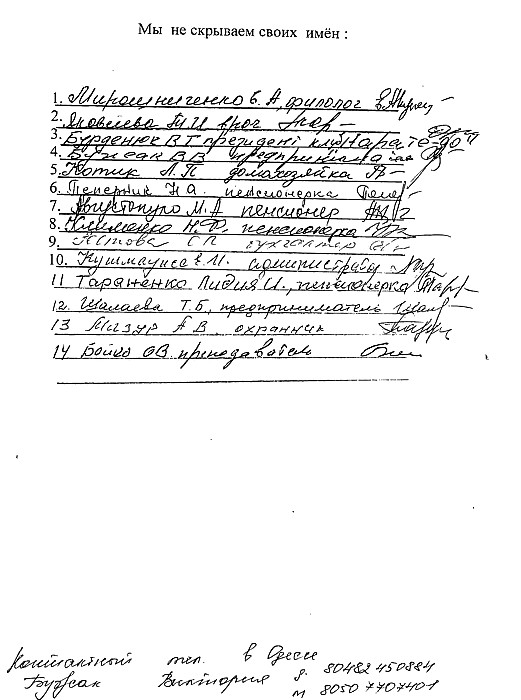 Мы не скрываем своих имён :
1. Мирошниченко Е. А, филолог
2. Яковлева Т И врач
3. Бурденюк В Т президент клуб Каратэ-до
4. Буджак В В предприниматель
5. Котик Л. П домохозяйка
6. Теперник Н А. пенсионерка
7. Августопуло М. А пенсионер
8. Клименко Н. Ф. пенсионерка
9. С П бухгалтер
10. Е. И. администратор
11 Тараненко Лидия И., пенсионерка
12. Шалаева Т. Б., предприниматель
13 Мазур А В охранник
14 Бойко О В. преподаватель
Контактный тел. в Одессе
Буджак Виктория д. 80482 450884
м 8050 7707401